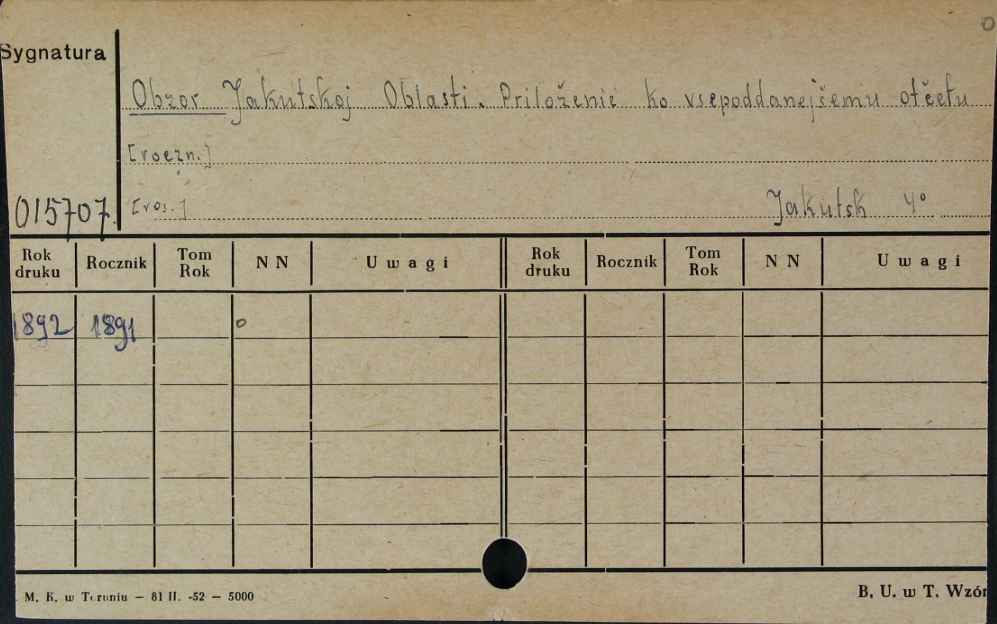 o
Sygnatura
Obzor Jakutskoj Oblasti. Priloženie ko vsepoddanejšemu otčetu
[roczn.]
015707. [ros.] Jakutsk 4°
Rok druku Rocznik Tom Rok NN Uwagi Rok druku Rocznik Tom Rok NN Uwagi
1892 1891 o
M. K. w Toruniu — 81 II. -52 — 5000 B. U. w T. Wzór